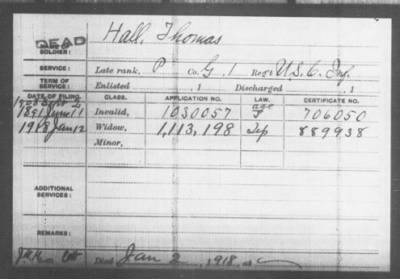 DEAD Hall, Thomas
SOLDIER:
SERVICE: Late rank, P Co. G, 1 Reg't U.S.C. Inf.
TERM OF SERVICE: Enlisted , 1 Discharged , 1
DATE OF FILING. CLASS. APPLICATION NO. LAW. CERTIFICATE NO.
1891 June 11 Invalid, 1030057 706050
1918 Jan 12 Widow, 1,113,198 889938
Minor,
ADDITIONAL SERVICES:
REMARKS:
Died Jan 2, 1918, at